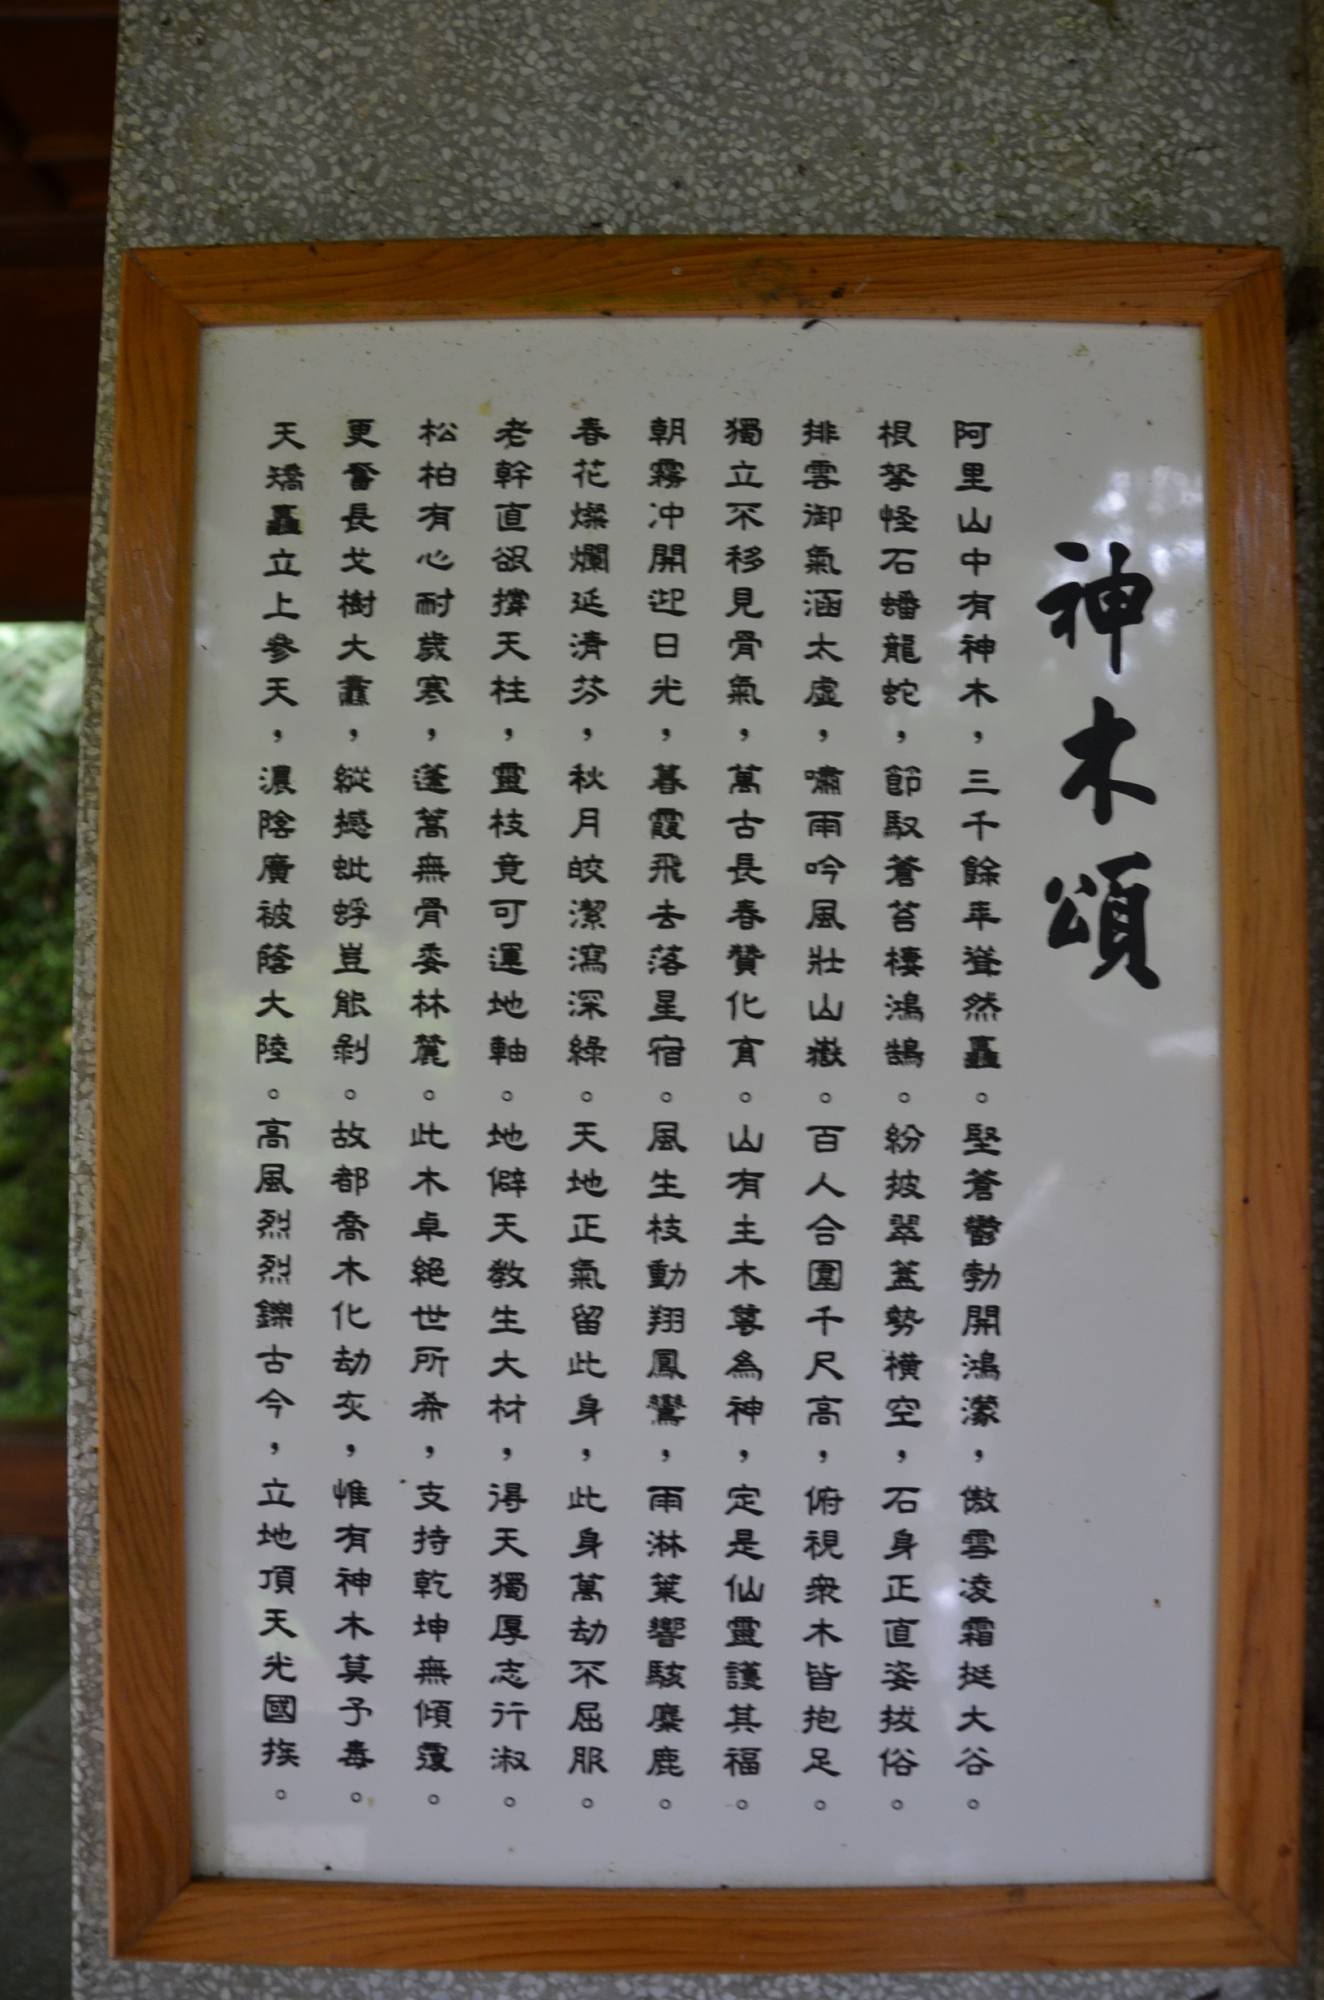 神木頌
阿里山中有神木，三千餘年聳然矗。堅蒼鬱勃開鴻濛，傲雪凌霜挺大谷。
根拏怪石蟠龍蛇，節馭蒼苔棲鴻鵠。紛披翠蓋勢橫空，石身正直姿拔俗。
排雲御氣涵太虛，嘯雨吟風壯山嶽。百人合圍千尺高，俯視衆木皆抱足。
獨立不移見骨氣，萬古長春贊化育。山有主木尊為神，定是仙靈護其福。
朝霧冲開迎日光，暮霞飛去落星宿。風生枝動翔鳳鸞，雨淋葉響駭麋鹿。
春花燦爛延清芬，秋月皎潔瀉深綠。天地正氣留此身，此身萬劫不屈服。
老幹直欲撐天柱，靈枝竟可運地軸。地僻天教生大材，得天獨厚志行淑。
松柏有心耐歲寒，蓬蒿無骨委林麓。此木卓絕世所希，支持乾坤無傾覆。
更奮長戈樹大纛，縱撼蚍蜉豈能剝。故都喬木化劫灰，惟有神木莫予毒。
天矯矗立上參天，濃陰廣被蔭大陸。高風烈烈鑠古今，立地頂天光國族。